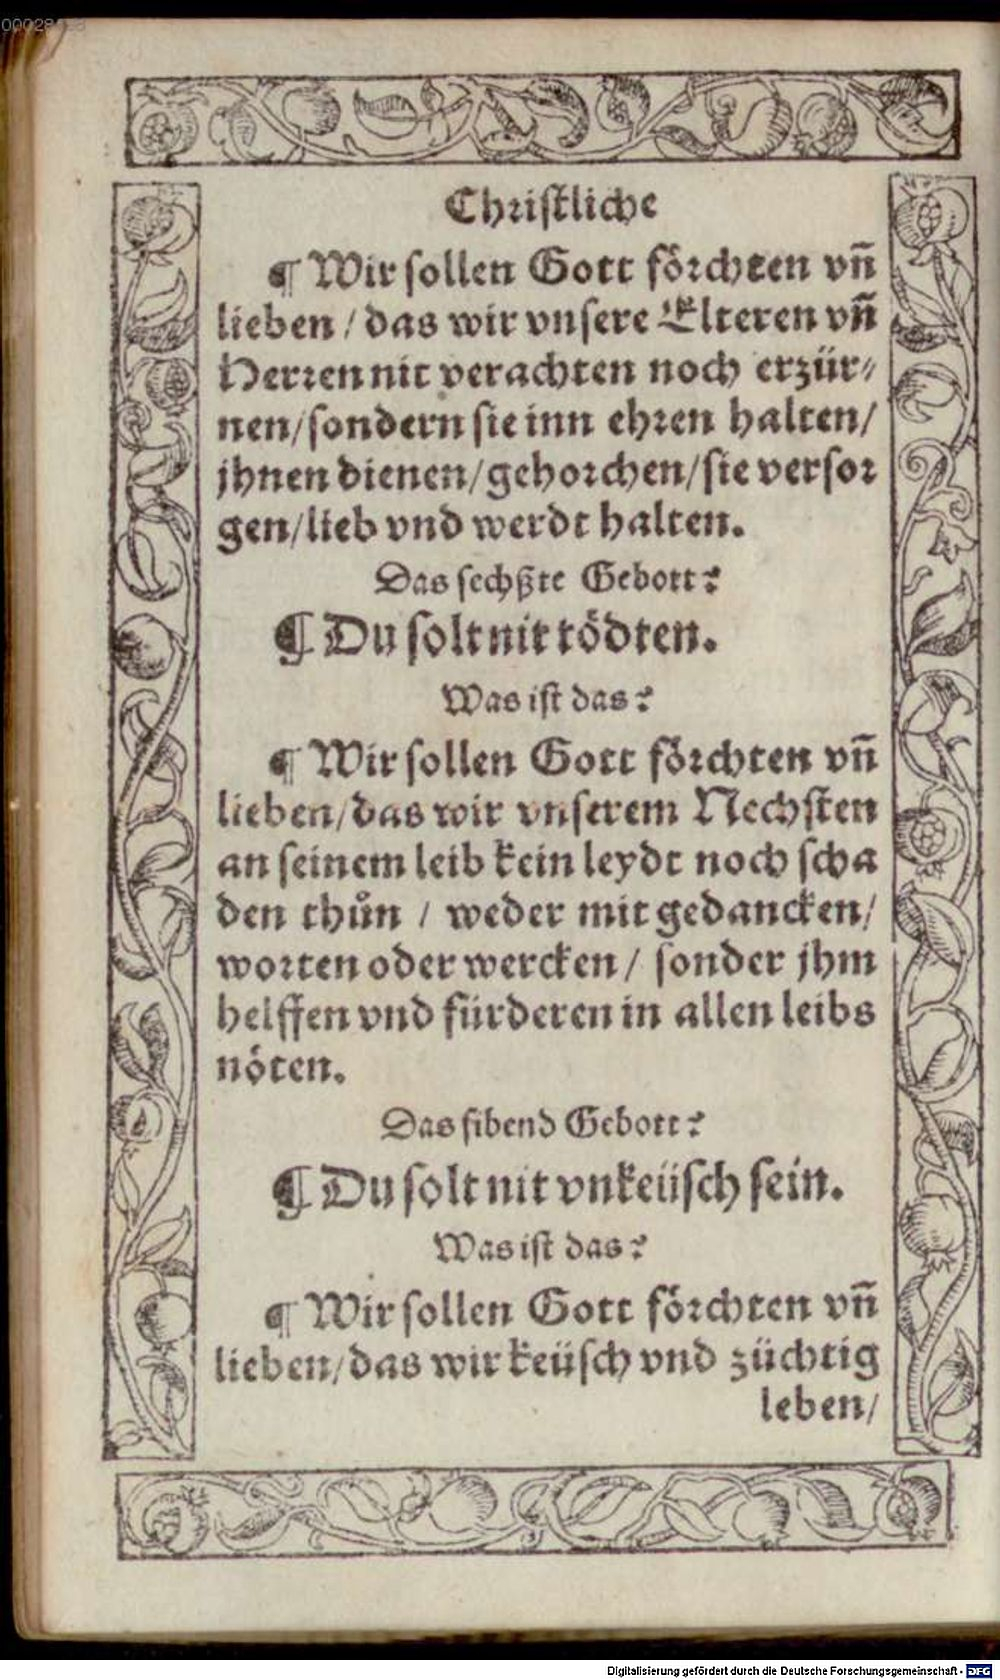 00028
Christliche
¶ Wir sollen Gott förchten vñ
lieben / das wir vnsere Elteren vñ
Herren nit verachten noch erzür⸗
nen/sondern sie inn ehren halten/
jhnen dienen/gehorchen/sie versor
gen/lieb vnd werdt halten.
Das sechßte Gebott?
¶ Du solt nit tödten.
Was ist das?
¶ Wir sollen Gott förchten vñ
lieben/das wir vnserem Nechsten
an seinem leib kein leydt noch scha
den thůn / weder mit gedancken/
worten oder wercken/ sonder jhm
helffen vnd fürderen in allen leibs
nöten.
Das sibend Gebott?
¶ Du solt nit vnkeüsch sein.
Was ist das?
¶ Wir sollen Gott förchten vñ
lieben/das wir keüsch vnd züchtig
leben/
Digitalisierung gefördert durch die Deutsche Forschungsgemeinschaft - DFG